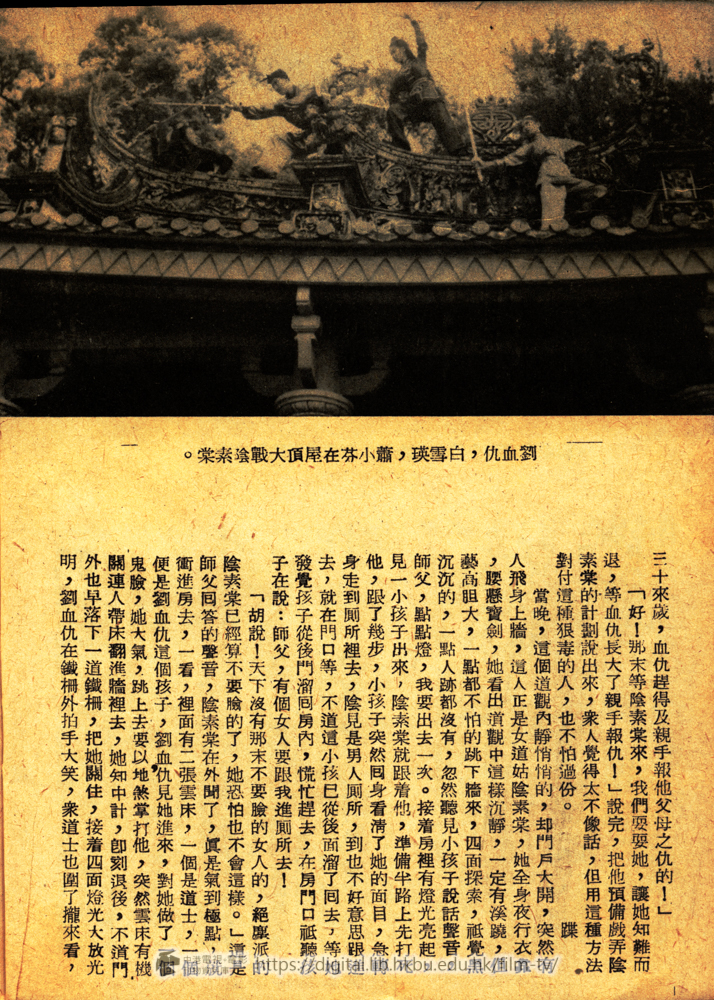 劉血仇，白雪瑛，蕭小芬在屋頂大戰陰素棠。
三十來歲，血仇趕得及親手報他父母之仇的！」
「好！那末等陰素棠來，我們耍耍她，讓她知難而
退，等血仇長大了親手報仇！」說完，把他預備戲弄陰
素棠的計劃說出來，衆人覺得太不像話，但用這種方法
對付這種狠毒的人，也不怕過份。
當晚，這個道觀內靜悄悄的，却門戶大開，突然
人飛身上牆，這人正是女道姑陰素棠，她全身夜行衣
，腰懸寶劍，她看出道觀中這樣沉靜，一定有溪蹺，
藝高胆大，一點都不怕的跳下牆來，四面探索，祗覺黑
沉沉的，一點人跡都沒有，忽然聽見小孩子說話聲音
師父，點點燈，我要出去一次。接着房裡有燈光亮起
見一小孩子出來，陰素棠就跟着他，準備半路上先打
他，跟了幾步，小孩子突然囘身看清了她的面目，急
身走到厠所裡去，陰見是男人厠所，到也不好意思跟
去，就在門口等，不道這小孩巳從後面溜了囘去，等
發覺孩子從後門溜囘房內，慌忙趕去，在房門口祗聽
子在說：師父，有個女人要跟我進厠所去！
「胡說！天下沒有那末不要臉的女人的，絕塵派的
陰素棠已經算不要臉的了，她恐怕也不會這樣。」這是
師父囘答的聲音，陰素棠在外聞了，眞是氣到極點，
衝進房去，一看，裡面有二張雲床，一個是道士，一個
便是劉血仇這個孩子，劉血仇見她進來，對她做了個
鬼臉，她大氣，跳上去要以地煞掌打他，突然雲床有機
關連人帶床翻進牆裡去，她知中計，卽刻退後，不道門
外也早落下一道鐵柵，把她關住，接着四面燈光大放光
明，劉血仇在鐵柵外拍手大笑，衆道士也圍了攏來看，
https://digital.lib.hkbu.edu.hk/film-tv/